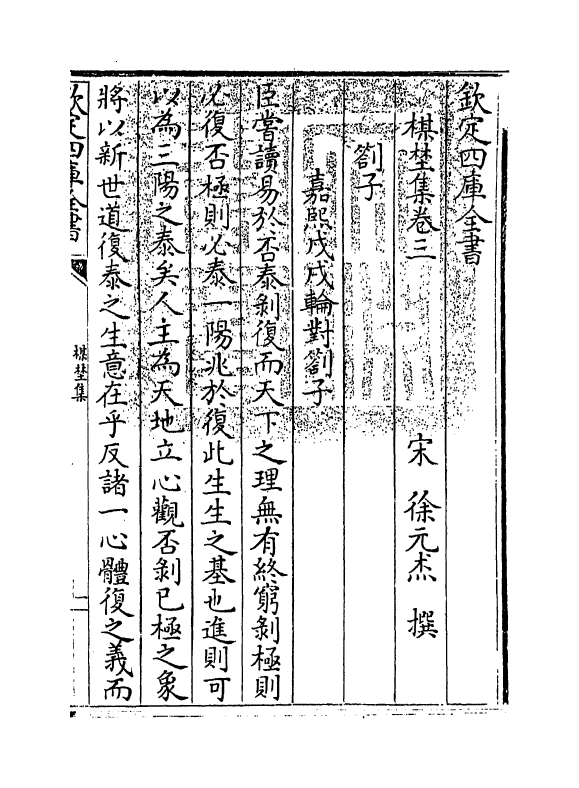 欽定四庫全書
楳埜集卷三
宋 徐元杰 撰
劄子
嘉熙戊戌輪對劄子
臣嘗讀易於否泰剝復而天下之理無有終窮剝極則
必復否極則必泰一陽兆於復此生生之基也進則可
以為三陽之泰矣人主為天地立心觀否剝已極之象
將以新世道復泰之生意在乎反諸一心體復之義而
欽定四庫全書
楳埜集
一